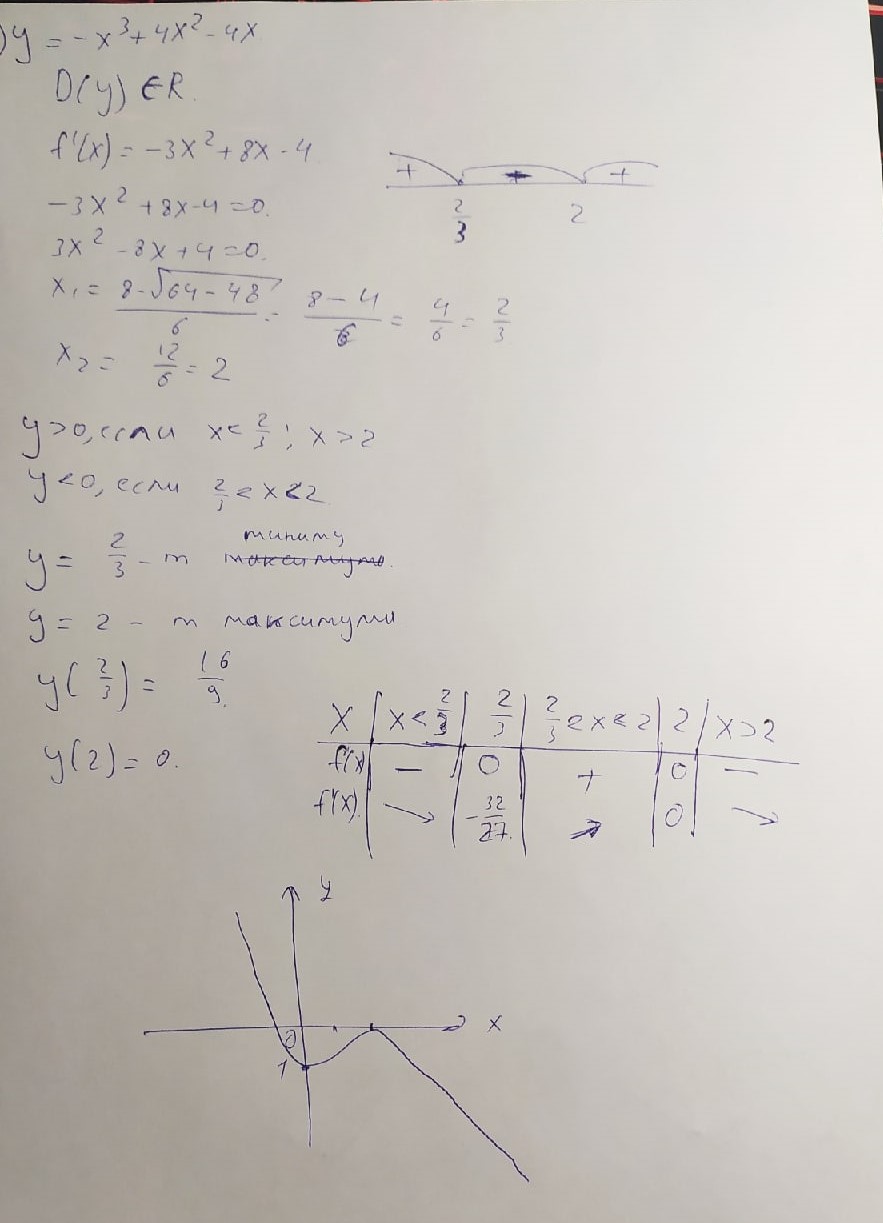 ) y = -x³ + 4x² - 4x
D(y) ∈ R.
f'(x) = -3x² + 8x - 4
-3x² + 8x - 4 = 0.
3x² - 8x + 4 = 0.
x₁ = (8 - √(64 - 48))/6 = (8 - 4)/6 = 4/6 = 2/3
x₂ = 12/6 = 2
+ + +
2/3 2
y > 0, если x < 2/3 ; x > 2
y < 0, если 2/3 < x < 2
y = 2/3 - т миниму
y = 2 - т максимумы
y(2/3) = 16/9.
y(2) = 0.
X | x < 2/3 | 2/3 | 2/3 < x < 2 | 2 | x > 2
f'(x) | − | 0 | + | 0 | −
f'(x). | ↘ | -32/27. | ↗ | 0 | ↘
y
x
0
1